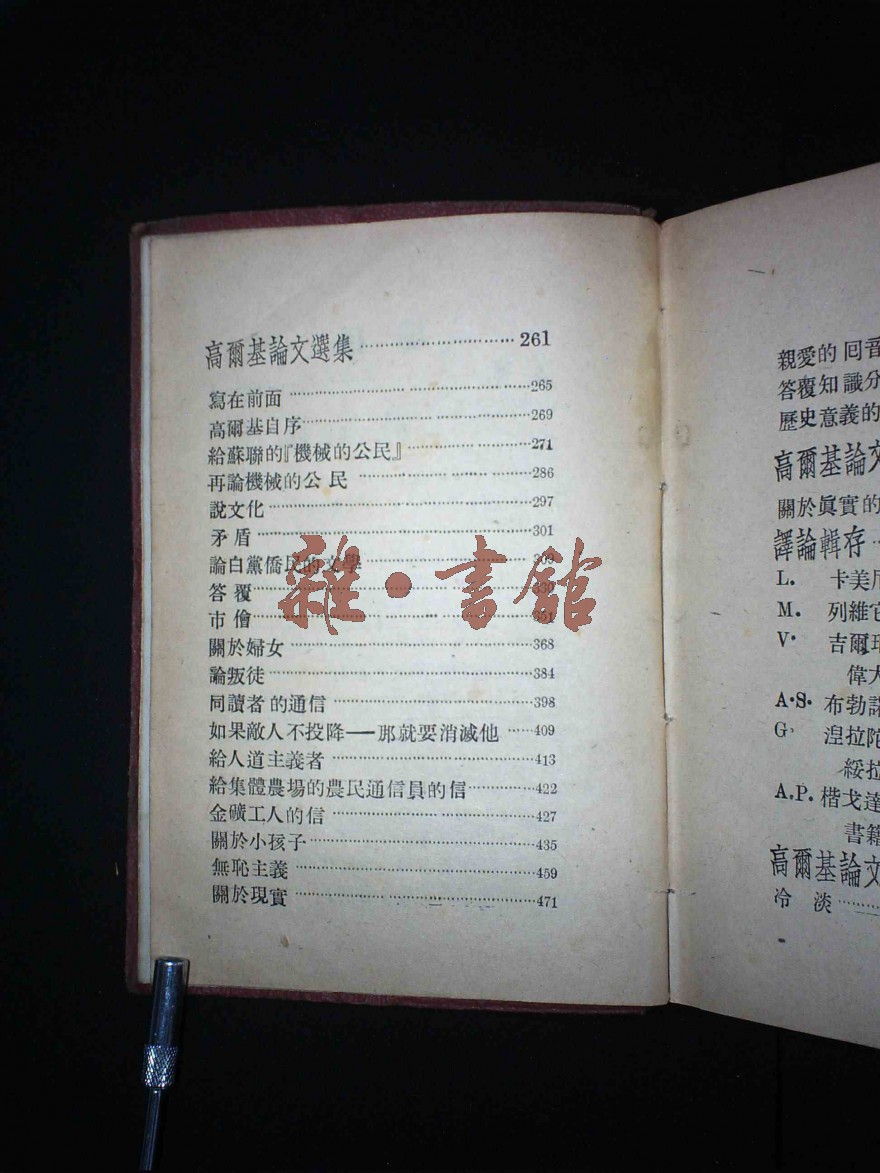 高爾基論文選集 261
寫在前面 265
高爾基自序 269
給蘇聯的『機械的公民』 271
再論機械的公民 286
說文化 297
矛盾 301
論白黨僑民的文學 309
答覆
市儈 351
關於婦女 368
論叛徒 384
同讀者的通信 398
如果敵人不投降——那就要消滅他 409
給人道主義者 413
給集體農場的農民通信員的信 422
金礦工人的信 427
關於小孩子 435
無恥主義 459
關於現實 471
雜·書館
親愛的回音
答覆知識分
歷史意義的
高爾基論文
關於眞實的
譯論輯存
L. 卡美尼
M. 列維它
V. 吉爾
偉大
A.S. 布勃諾
G. 湼拉陀
綏拉
A.P. 楷戈達
書籍
高爾基論文
冷淡